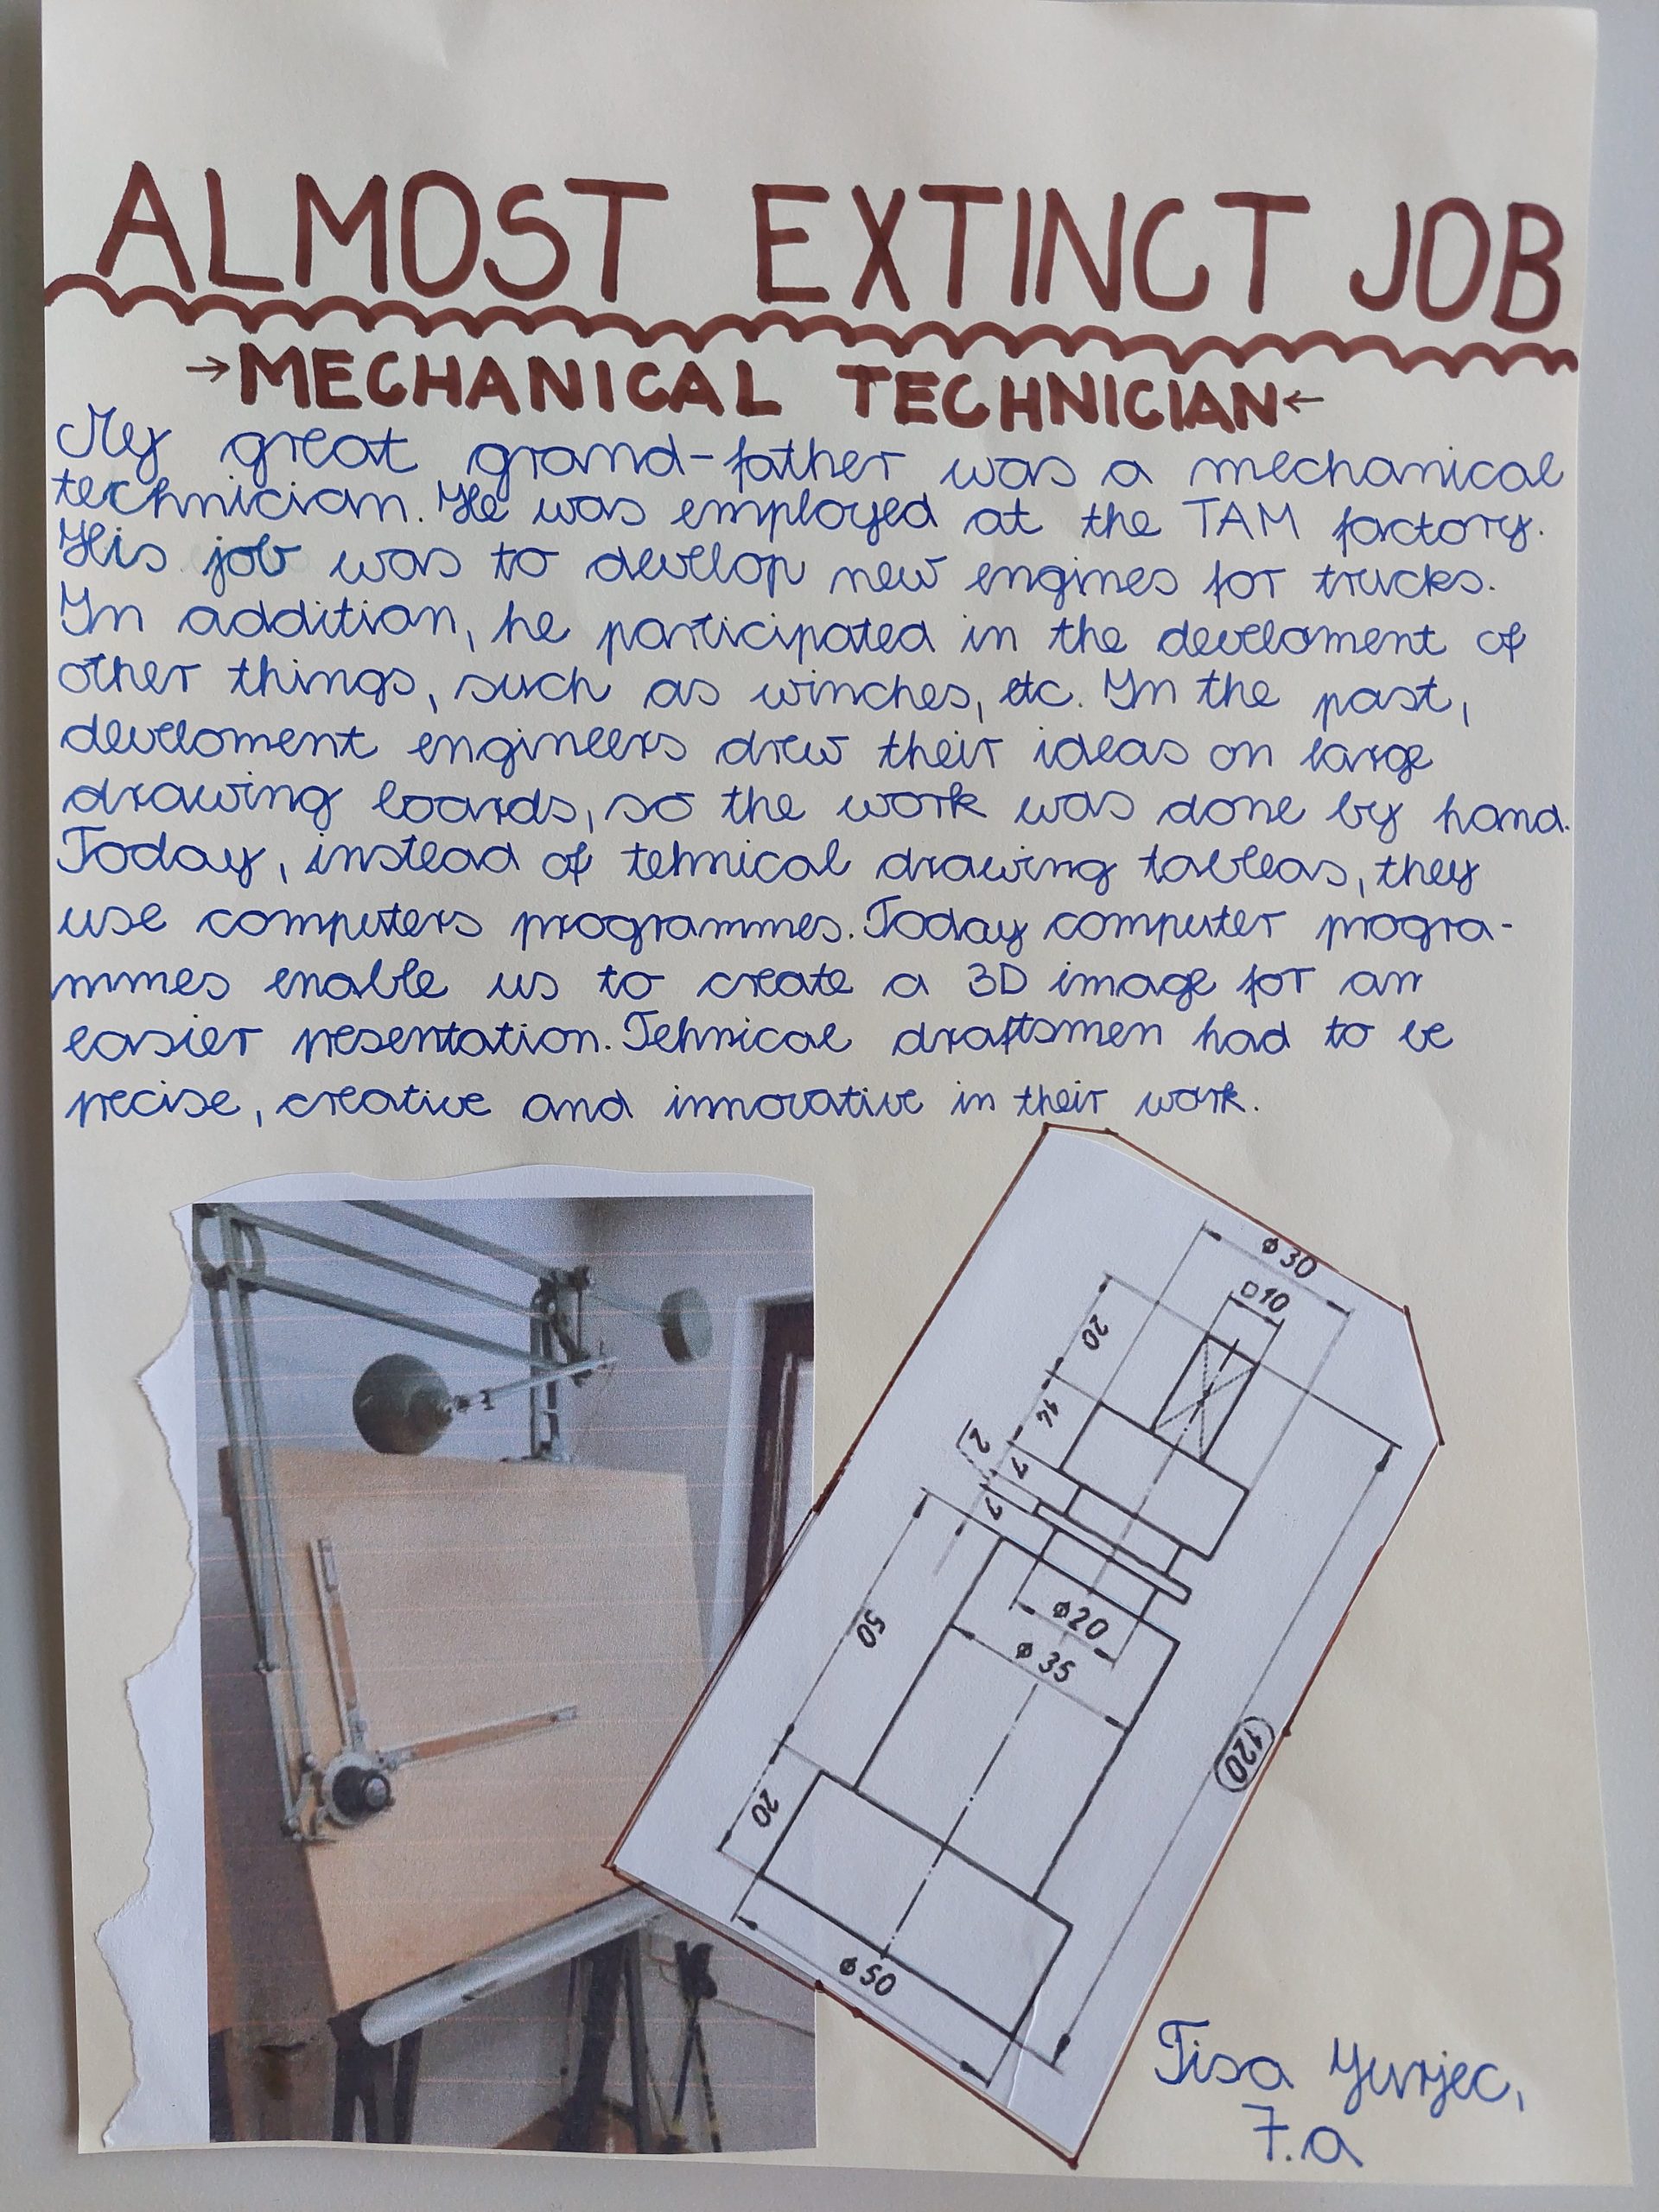 ALMOST EXTINCT JOB
→MECHANICAL TECHNICIAN←
My great grand-father was a mechanical
technician. He was employed at the TAM factory.
His job was to develop new engines for trucks.
In addition, he participated in the develoment of
other things, such as winches, etc. In the past,
develoment engineers drew their ideas on large
drawing boards, so the work was done by hand.
Today, instead of tehnical drawing tableas, they
use computers programmes. Today computer progra-
mmes enable us to create a 3D image for an
easier presentation. Tehnical draftsmen had to be
precise, creative and innovative in their work.
ϕ30
□10
20
14
7
2
7
ϕ20
ϕ35
50
120
20
ϕ50
Tisa Jurjec,
7.a